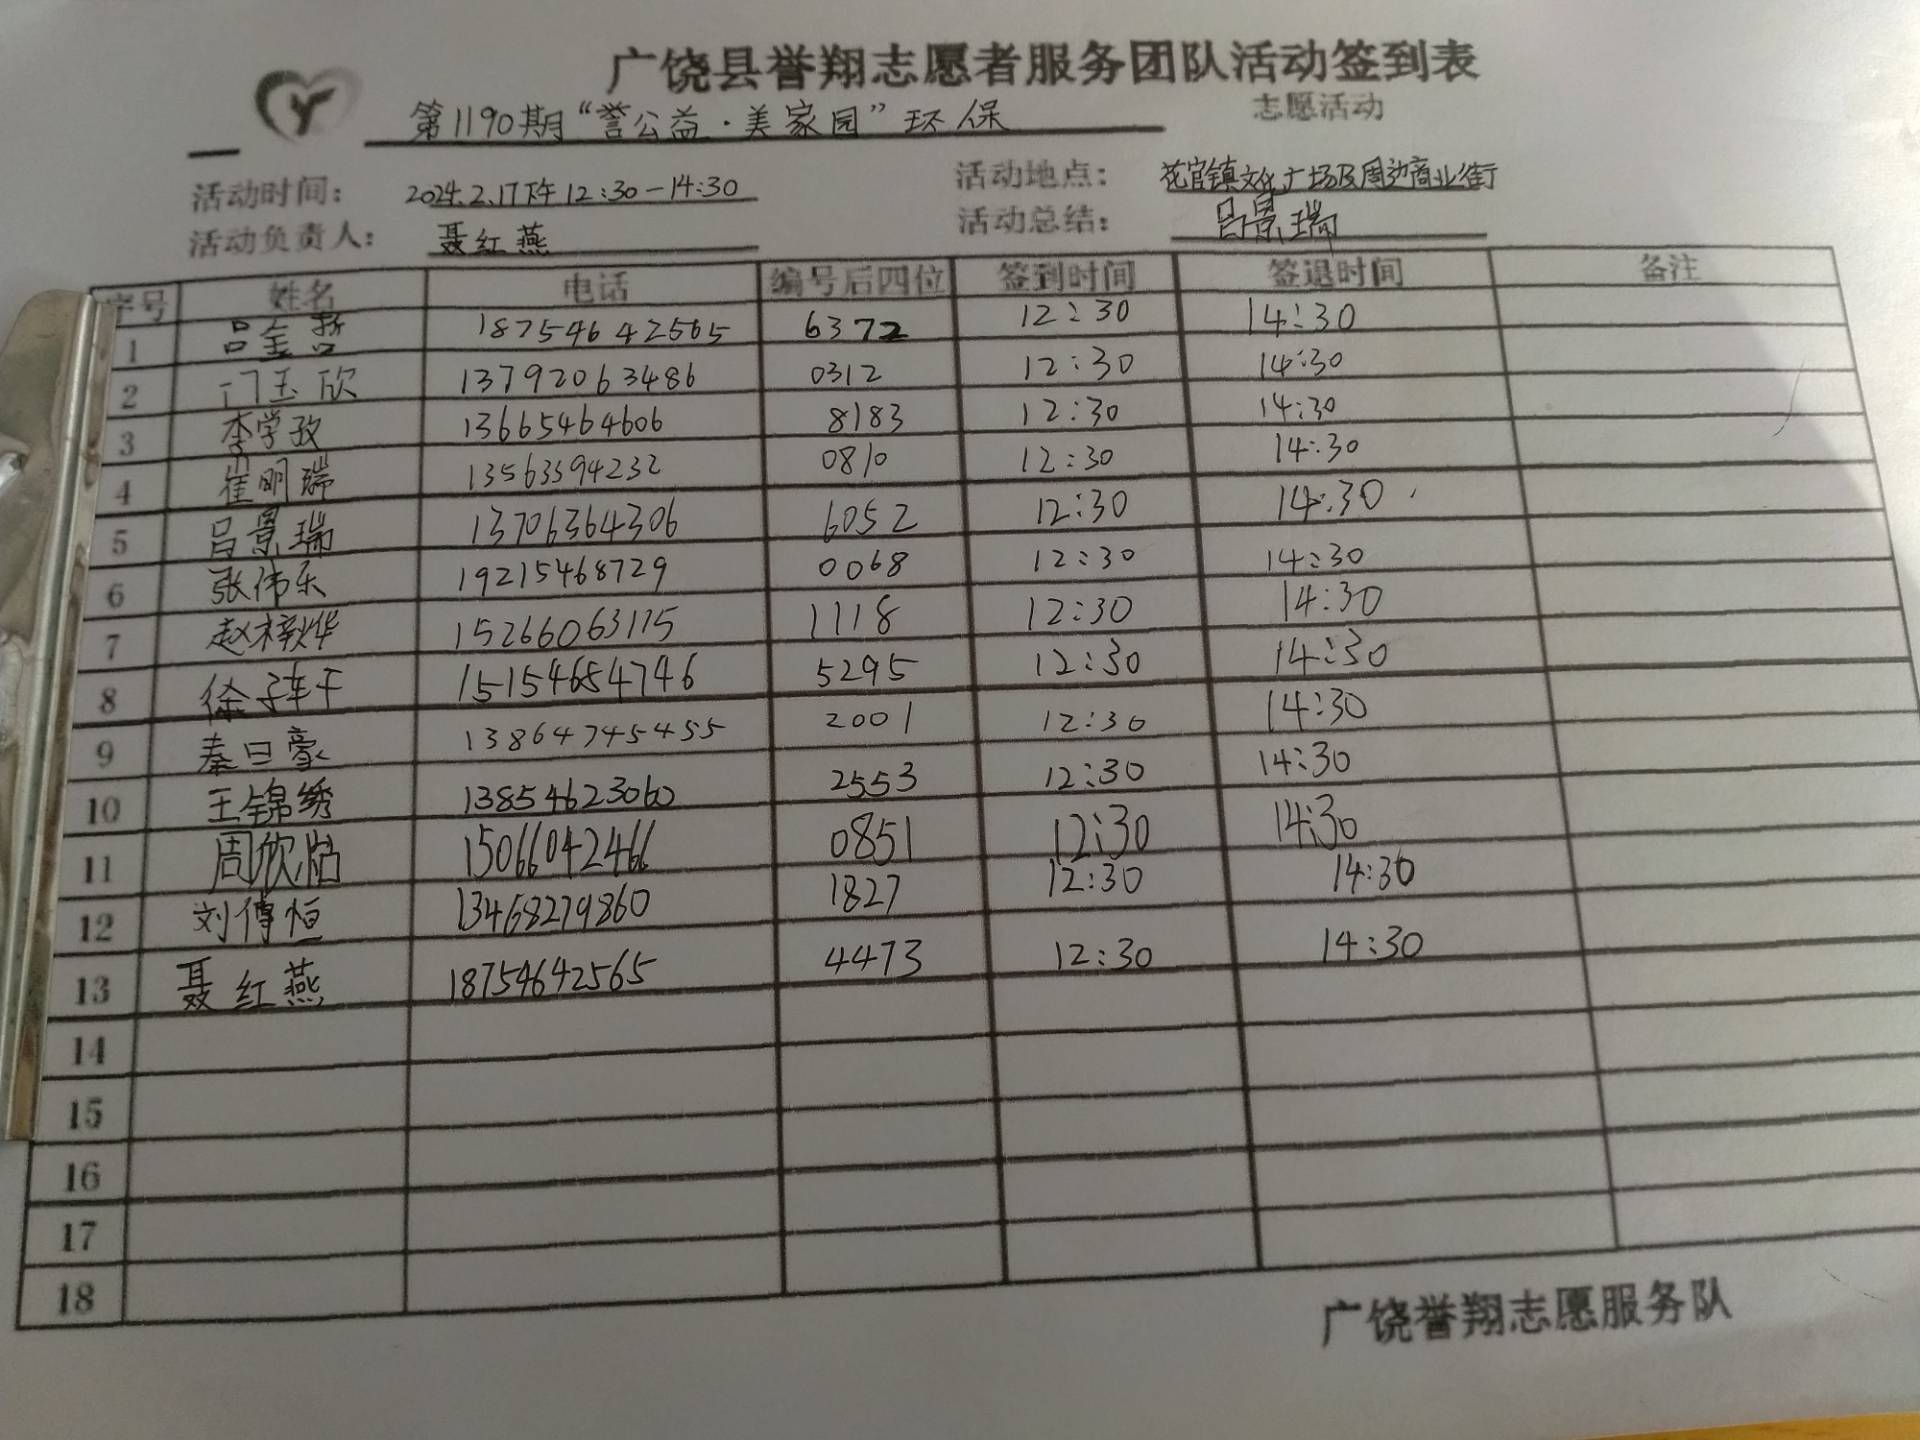 广饶县誉翔志愿者服务团队活动签到表
第1190期“誉公益·美家园”环保 志愿活动
活动时间： 2024.2.17下午12:30-14:30 活动地点： 花官镇文化广场及周边商业街
活动负责人： 聂红燕 活动总结： 吕景瑞
序号 姓名 电话 编号后四位 签到时间 签退时间 备注
1 吕金哲 18754642565 6372 12:30 14:30
2 门玉欣 13792063486 0312 12:30 14:30
3 李学孜 13665464606 8183 12:30 14:30
4 崔明瑞 13563394232 0810 12:30 14:30
5 吕景瑞 13706364306 6052 12:30 14:30
6 张伟乐 19215468729 0068 12:30 14:30
7 赵梓烨 15266063115 1118 12:30 14:30
8 徐子轩 15154654746 5295 12:30 14:30
9 秦曰豪 13864745455 2001 12:30 14:30
10 王锦绣 13854623060 2553 12:30 14:30
11 周欣 15066042466 0851 12:30 14:30
12 刘傅恒 13468279860 1827 12:30 14:30
13 聂红燕 18754642565 4473 12:30 14:30
14
15
16
17
18
广饶誉翔志愿服务队